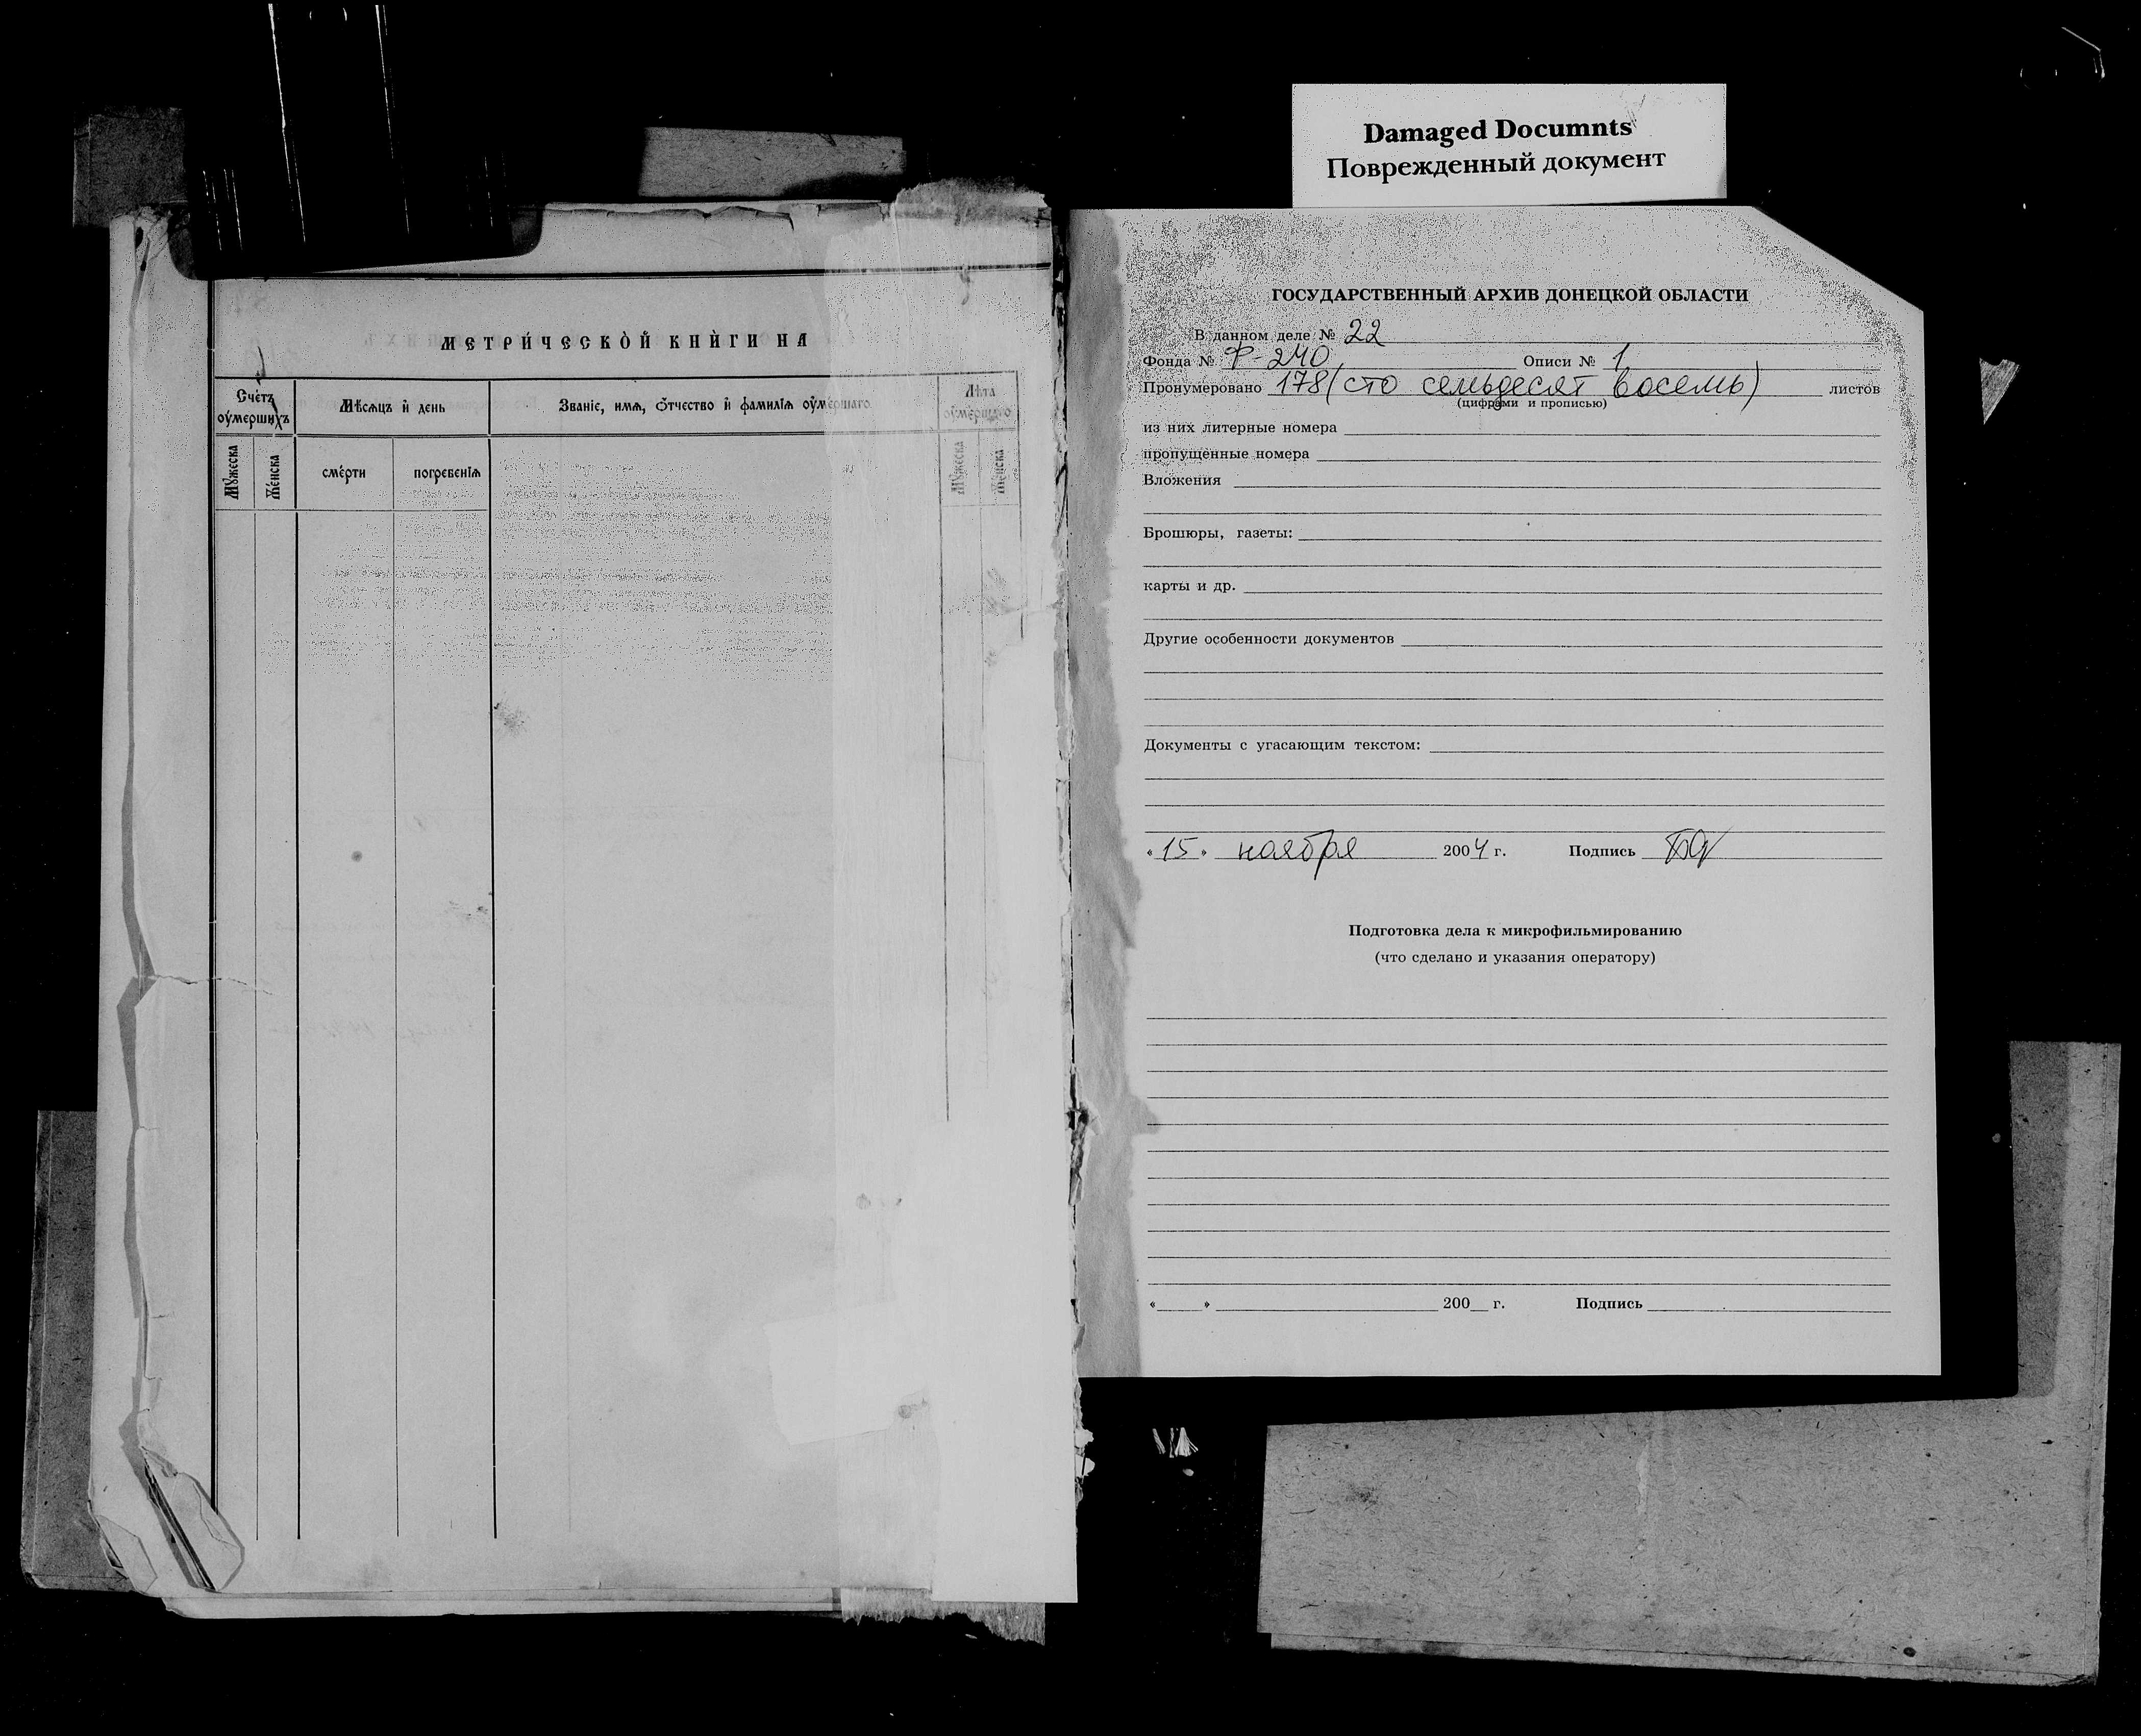 Damaged Documnts
Поврежденный документ
МЕТРИ́ЧЕСКО̀Й КНЍГИ НА
Сче́тъ оу҆ме́ршихъ
Мѣ́сѧцъ и҆ день
Зва́нїе, и҆мѧ, ѻ҆́тчество и҆ фами́лїѧ оу҆ме́ршаго.
Лѣ́та оу҆ме́ршаго.
Мꙋ́жеска
Же́нска
сме́рти
погребе́нїѧ
Мꙋ́жеска
Же́нска
ГОСУДАРСТВЕННЫЙ АРХИВ ДОНЕЦКОЙ ОБЛАСТИ
В данном деле № 22
Фонда № Ф-240 Описи № 1
Пронумеровано 178 (сто семьдесят восемь) листов
(цифрами и прописью)
из них литерные номера
пропущенные номера
Вложения
Брошюры, газеты:
карты и др.
Другие особенности документов
Документы с угасающим текстом:
« 15 » ноября 2004 г. Подпись
Подготовка дела к микрофильмированию
(что сделано и указания оператору)
« » 200 г. Подпись